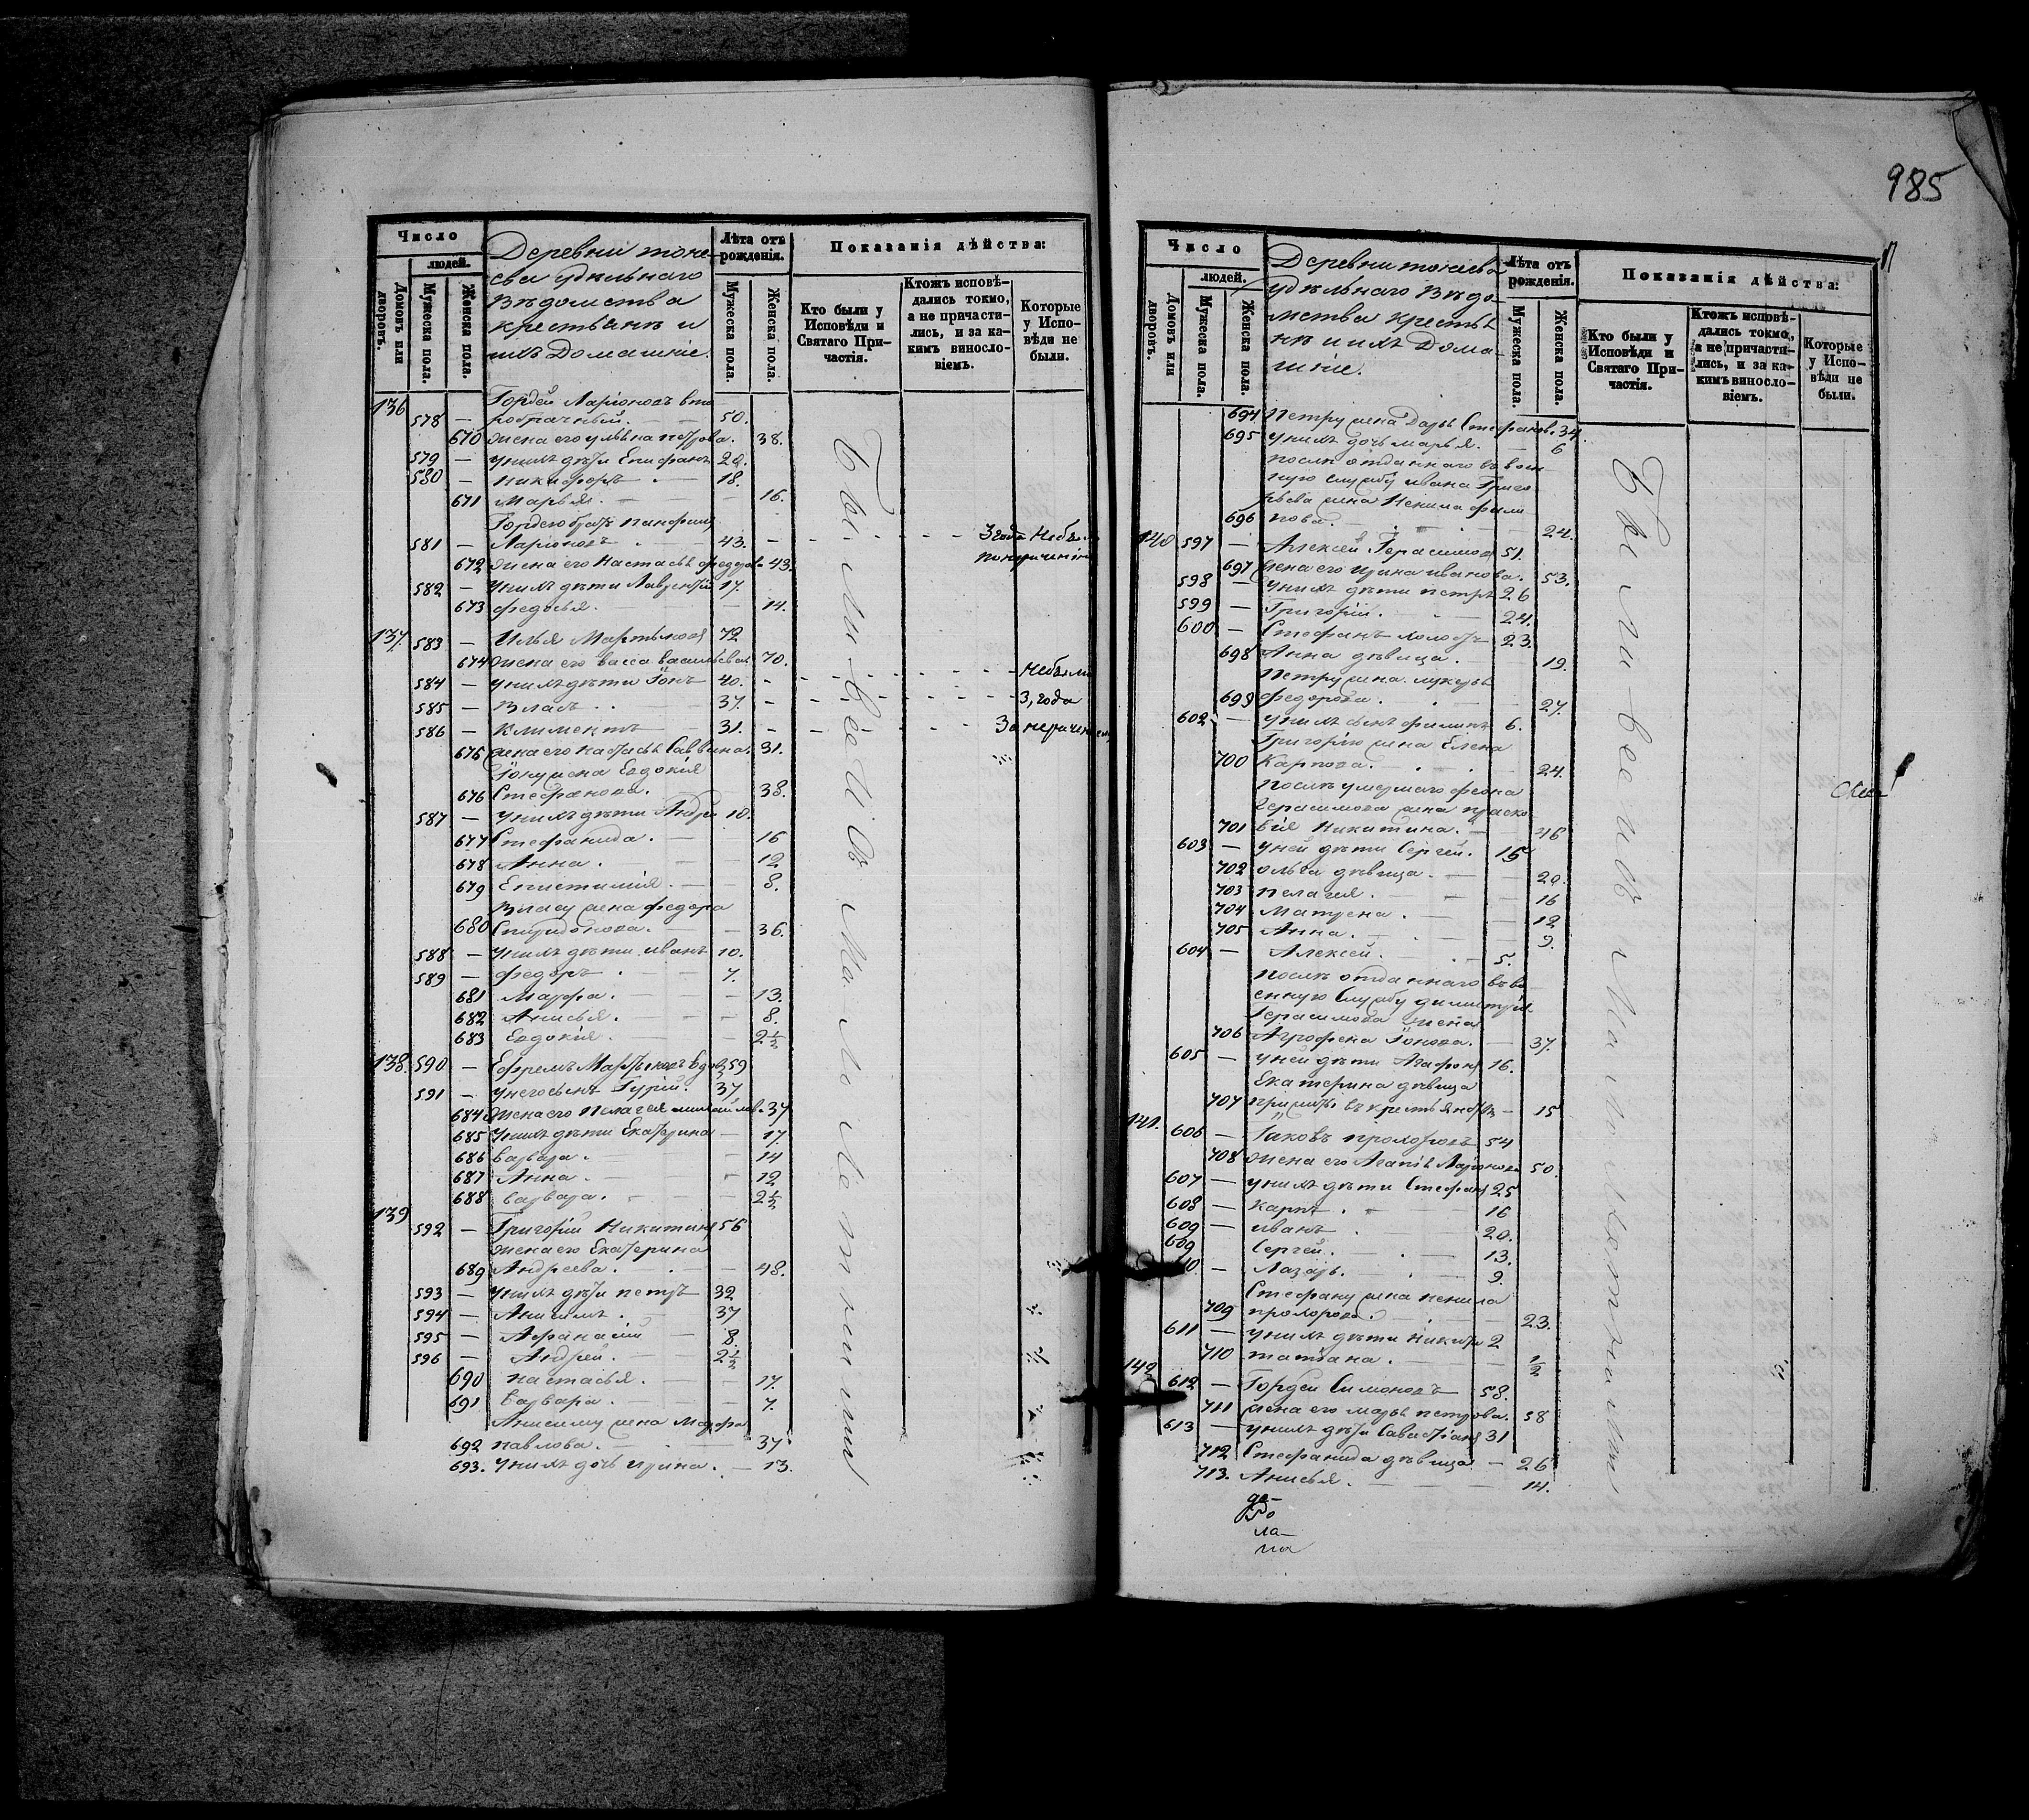 985
Число
людей.
Домовъ или дворовъ.
Мужеска пола.
Женска пола.
Деревни тоне-
ева удѣльнаго
вѣдомства
крестьянъ и
ихъ Домашніе.
Лѣта отъ рожденія.
Мужеска пола.
Женска пола.
Показанія дѣйства:
Кто были у Исповѣди и Святаго Причастія.
Ктожъ исповѣдались токмо, а не причастились, и за какимъ винословіемъ.
Которые у Исповѣди не были.
136 Гордей Ларіоновъ вто
578 — робрачный. 50.
670 жена его ульяна петрова. 38.
579 — у нихъ дѣти Епифанъ 20.
580 — Никифоръ 18.
671 Марья. 16.
Гордею братъ Панфилъ
581 — Ларіоновъ 43. 3 года Небыли
672 жена его Настасья федорова 43. по нерачению
582 — у нихъ дѣти Лаврентій 17.
673 федосья. 14.
137. 583 — Илья Мартыновъ 72
674 жена его васса васильева 70.
584 — у нихъ дѣти Іонъ 40. Небыли
585 — Власъ 37. 3, года
586 — Климентъ 31. За нерачением
675 жена его настасья Саввина. 31.
Іону жена Евдокія
676 Стефанова. 38.
587 — у нихъ дѣти Андрей 10.
677 Стефанида. 16
678 Анна. 12
679 Епистимія. 8.
Власу жена федора
680 Спиридонова. 36.
588 — у нихъ дѣти иванъ 10.
589 — федоръ 7.
681 Марфа. 13.
682 Анисья. 8.
683 Евдокія. 2½
138. 590 — Ефремъ Мартыновъ вдовъ 59
591 — у него сынъ Гурій. 37
684 жена его Пелагея михайлова 37
685 у нихъ дѣти Екатерина 17.
686 варвара. 14
687 Анна. 12
688 варвара. 2½
139
592 — Григорій Никитинъ 56
жена его Екатерина
689 Андреева. 48.
593 — у нихъ дѣти петръ 32
594 — Анисимъ 37
595 — Афанасій 8.
596 — Андрей. 2½
690 настасья. 17.
691 варвара. 7.
Анисиму жена Марфа
692 павлова. 37
693. у нихъ дочь ирина. 13.
Были въ Исповѣди
Число
людей.
Домовъ или дворовъ.
Мужеска пола.
Женска пола.
Деревни тонева
удѣльнаго вѣдо
мства крестья
нъ и ихъ Дома
шніе.
Лѣта отъ рожденія.
Мужеска пола.
Женска пола.
Показанія дѣйства:
Кто были у Исповѣди и Святаго Причастія.
Ктожъ исповѣдались токмо, а не причастились, и за какимъ винословіемъ.
Которые у Исповѣди не были.
694 Петру жена Дарья Стефанов. 34.
695 у нихъ дочь марья. 6
послѣ отданнаго въ воен
ную службу ивана Григо
рьева жена Ненила фили
696 пова. 24.
140 597 — Алексей Герасимовъ 51.
697 жена его ирина иванова. 53.
598 — у нихъ дѣти петръ 26
599 — Григорій. 24.
600 — Стефанъ холостъ 23.
698 Анна дѣвица. 19.
Петру жена лукерья
699 федорова. 27.
602 — у нихъ сынъ филипъ 6.
Григорію жена Елена
700 Карпова. 24.
послѣ умершаго
Герасимова жена праско
701 вія Никитина. 46
603 — у ней дѣти Сергей. 15
702 ольга дѣвица. 20.
703 пелагея. 16
704 Матрена. 12
705 Анна. 9.
604 — Алексей. 5.
послѣ отданнаго въ во
енную Службу димитрія
Герасимова жена
706 Агрофена Іонова. 37.
605 — у ней дѣти Агафонъ 16.
Екатерина дѣвица
707 15
141. 606 — Іаковъ прохоровъ 54
708 жена его Агапія Ларіонова 50.
607 — у нихъ дѣти Стефанъ 25
608 — карпъ 16
609 — иванъ 20.
609 Сергей. 13.
— Лазарь. 9.
Стефану жена ненила
709 прохорова. 23.
611 — у нихъ дѣти никита 2
710 татіана. ½
142
612 — Гордей Симоновъ 58.
711 жена его марья петрова. 58
613 — у нихъ дѣти Савастіанъ 31
712 Стефанида дѣвица 26
713. Анисья. 14.